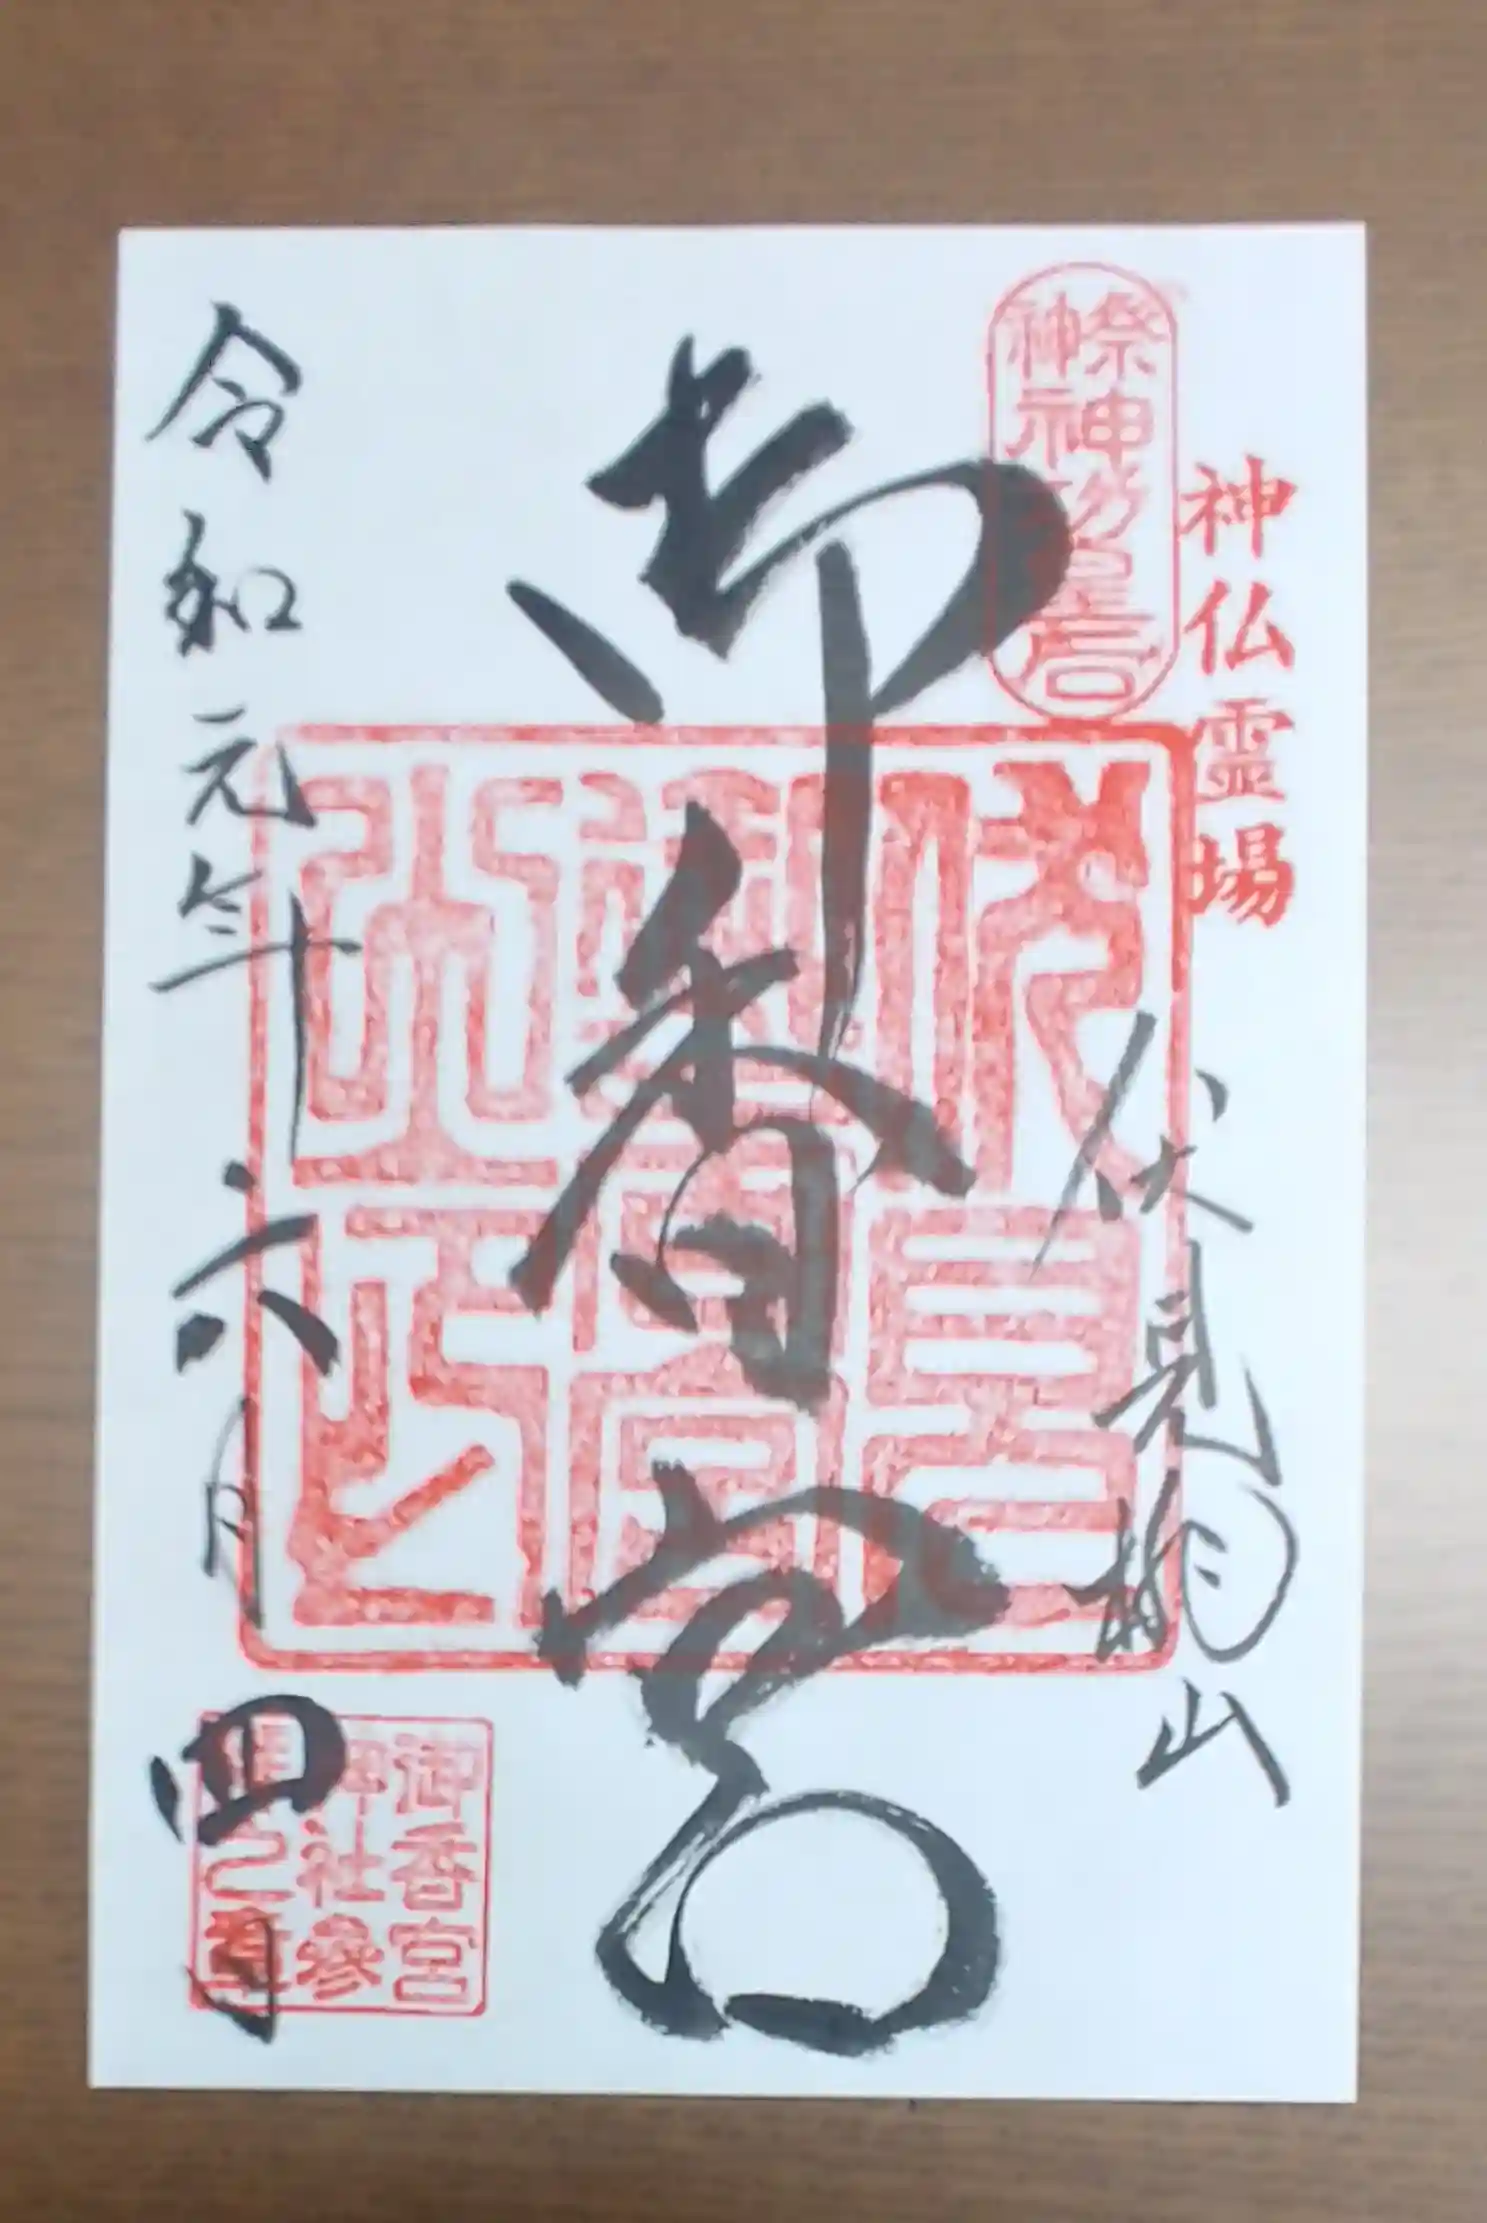 神仏霊場
伏見桃山
祭神
神功皇后
御香宮
令和元年六月四日
御香宮
神社参
拝之章